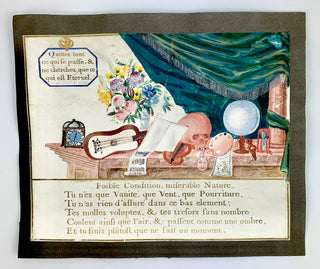 Quittez tout
ce qui se passe, &
ne cherchez que ce
qui est Eternel.
Foible Condition, miserable Nature,
Tu n'es que Vanité, que Vent, que Pourriture,
Tu n'as rien d'assuré dans ce bas element;
Tes molles voluptez, & tes tresors sans nombre
Coulent ainsi que l'air, & passent comme une ombre,
Et tu finis plûtost, que ne fait un moment.